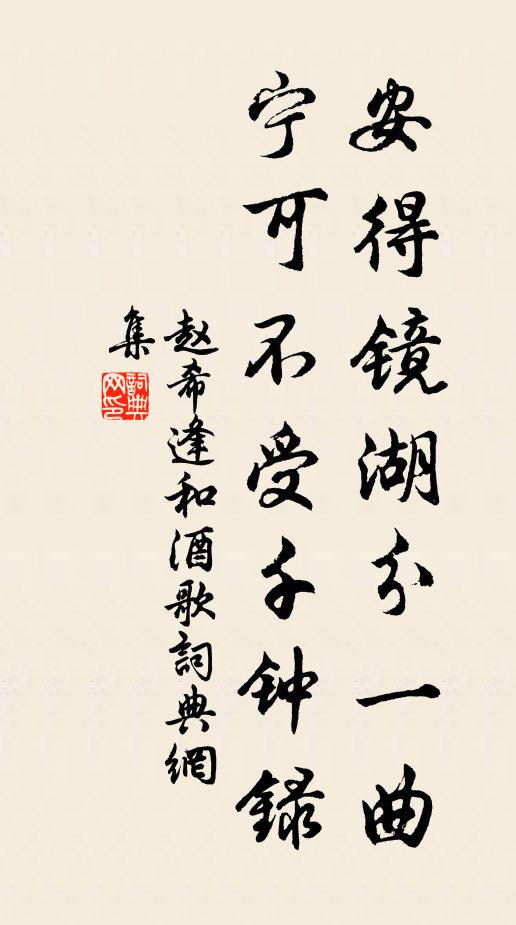 安得镜湖分一曲
宁可不受千钟録
赵希逢和酒歌詞典網
集
詞典
网印